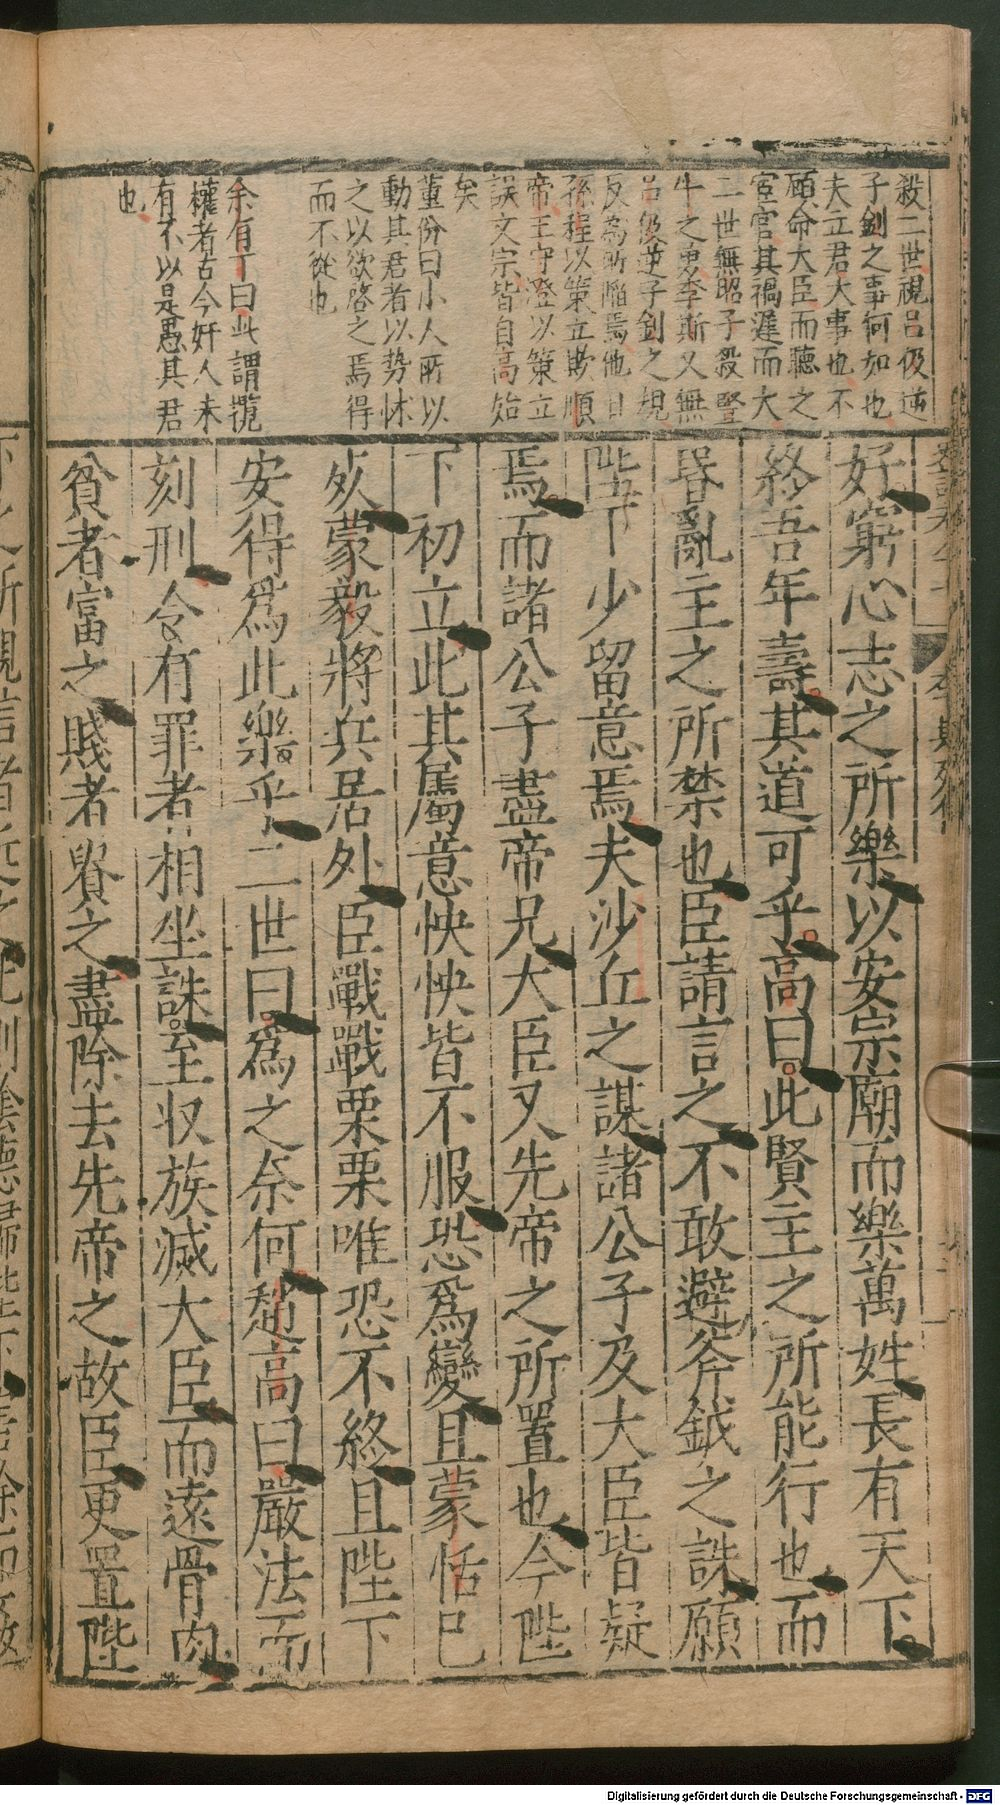 殺二世視呂伋逆
子釗之事何如也
夫立君大事也不
顧命大臣而聽之
宦官其禍遲而大
二世無昭子殺豎
牛之勇李斯又無
呂伋逆子釗之規
反為所陷焉他日
孫程以策立欺順
帝王守澄以策立
誤文宗皆自高始
矣
董份曰小人所以
動其君者以势怵
之以欲啓之焉得
而不從也
余有丁曰此謂攬
權者古今奸人未
有不以是愚其君
也
好窮心志之所樂以安宗廟而樂萬姓長有天下
終吾年壽其道可乎高曰此賢主之所能行也而
昬亂主之所禁也臣請言之不敢避斧鉞之誅願
陛下少留意焉夫沙丘之謀諸公子及大臣皆疑
焉而諸公子盡帝兄大臣又先帝之所置也今陛
下初立此其屬意怏怏皆不服恐爲變且蒙恬已
死蒙毅將兵居外臣戰戰栗栗唯恐不終且陛下
安得爲此樂乎二世曰爲之奈何趙高曰嚴法而
刻刑令有罪者相坐誅至収族滅大臣而遠骨肉
貧者富之賤者貴之盡除去先帝之故臣更置陛
Digitalisierung gefördert durch die Deutsche Forschungsgemeinschaft - DFG